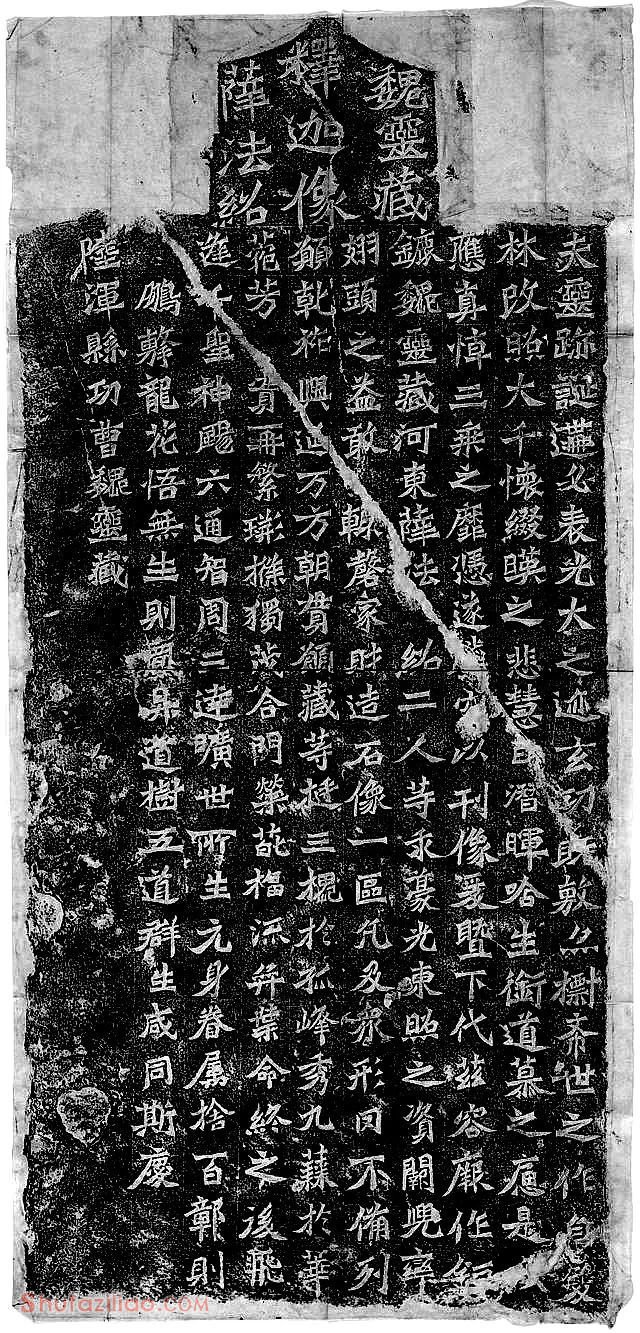 魏靈藏
釋迦像
薛法紹
夫靈跡誕遘必表光大之迹玄功既敷亦摽希世之作自雙
林改照大千懷綴暎之悲慧日潛暉唅生銜道慕之痛是以
應真悼三乘之靡憑遂騰空以刊像爰暨下代茲容厥作鉅
鏕魏靈藏河東薛法紹二人等求豪光東照之資闕兜率
翅頭之益敢輒磬家財造石像一區凡及眾形罔不備列
願乾祚興延万方朝貫願藏等挺三槐於孤峰秀九蕀於華
苑芳實再繁荊條獨茂合門榮葩福流弈葉命終之後飛
逢千聖神颺六通智周三達曠世所生元身眷屬捨百鄣則
鵬擊龍花悟無生則鳳昇道樹五道群生咸同斯慶
陸渾縣功曹魏靈藏
Shufaziliao.com